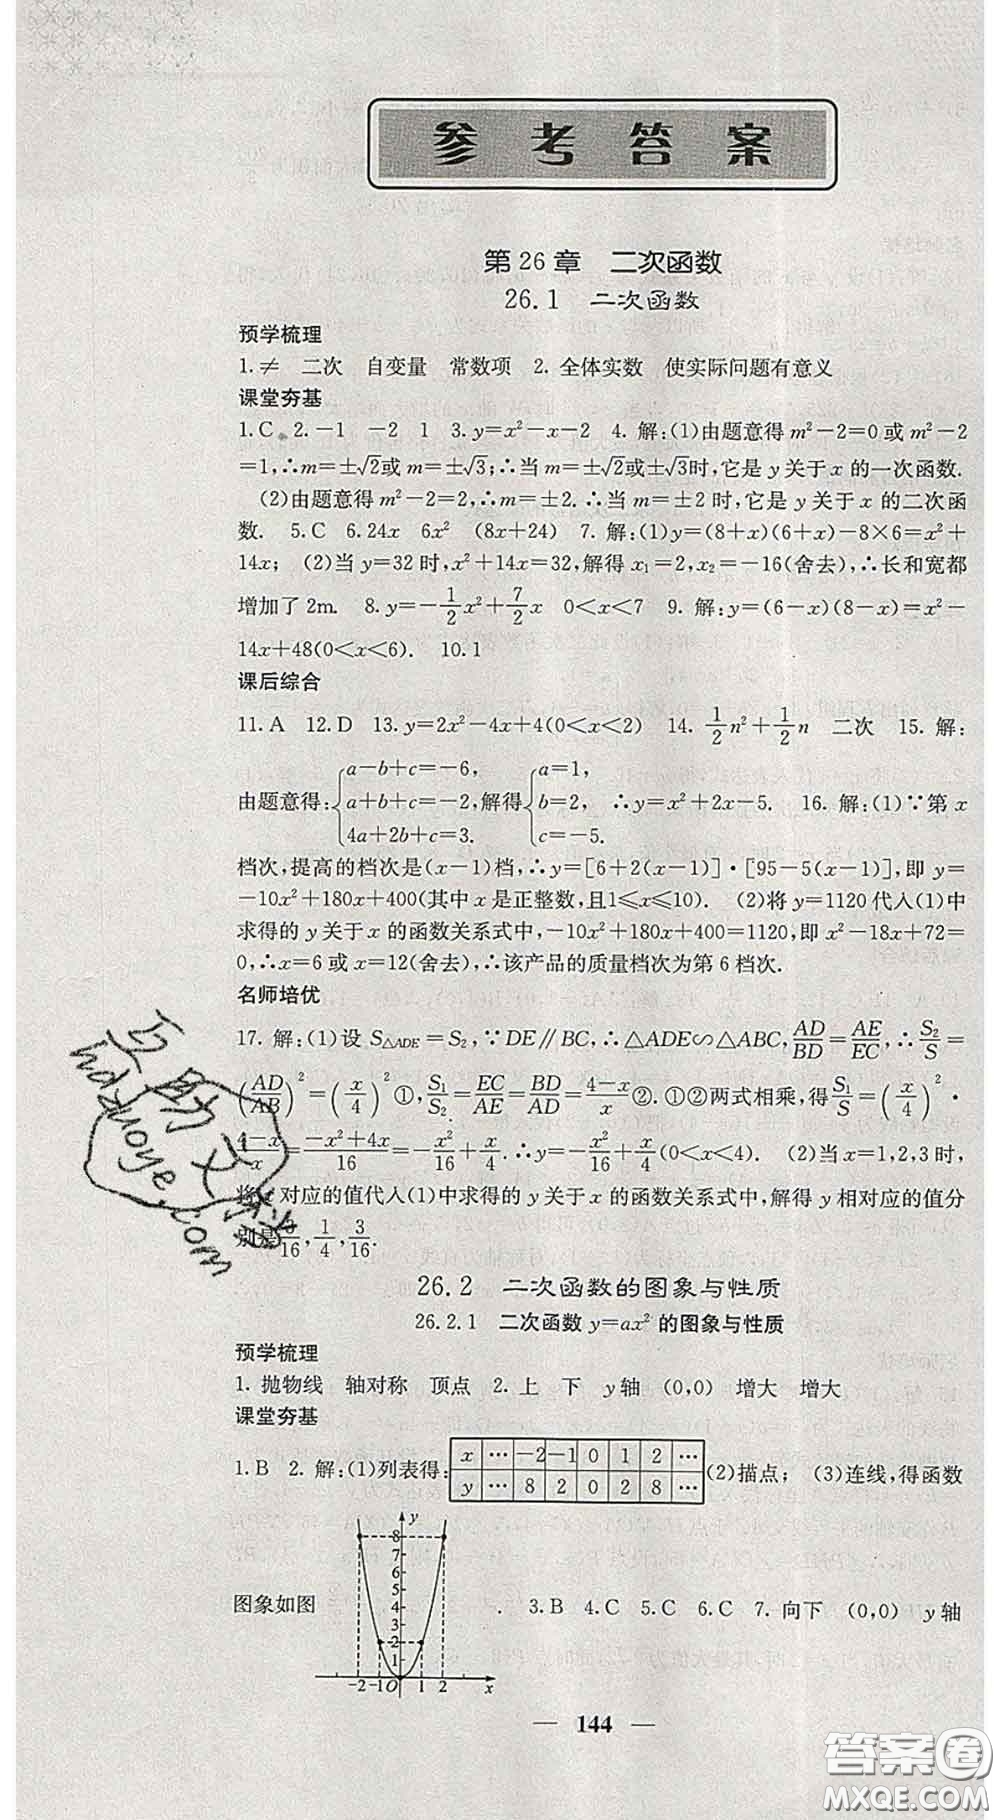 参考答案
第26章 二次函数
26.1 二次函数
预学梳理
1.≠ 二次 自变量 常数项 2.全体实数 使实际问题有意义
课堂夯基
1.C 2.-1 -2 1 3.y=x²-x-2 4.解:(1)由题意得m²-2=0或m²-2
=1,∴m=±√2或m=±√3;∴当m=±√2或±√3时,它是y关于x的一次函数.
(2)由题意得m²-2=2,∴m=±2.∴当m=±2时,它是y关于x的二次函
数. 5.C 6.24x 6x² (8x+24) 7.解:(1)y=(8+x)(6+x)-8×6=x²+
14x; (2)当y=32时,x²+14x=32,解得x₁=2,x₂=-16(舍去),∴长和宽都
增加了2m. 8.y=-1/2x²+7/2x 0<x<7 9.解:y=(6-x)(8-x)=x²-
14x+48(0<x<6). 10.1
课后综合
11.A 12.D 13.y=2x²-4x+4(0<x<2) 14.1/2n²+1/2n 二次 15.解:
由题意得:{a-b+c=-6, a+b+c=-2, 4a+2b+c=3. 解得{a=1, b=2, c=-5. ∴y=x²+2x-5. 16.解:(1)∵第x
档次,提高的档次是(x-1)档,∴y=[6+2(x-1)]·[95-5(x-1)],即y=
-10x²+180x+400(其中x是正整数,且1≤x≤10). (2)将y=1120代入(1)中
求得的y关于x的函数关系式中,-10x²+180x+400=1120,即x²-18x+72=
0,∴x=6或x=12(舍去),∴该产品的质量档次为第6档次.
名师培优
17.解:(1)设S△ADE=S₂,∵DE∥BC,∴△ADE∽△ABC,AD/BD=AE/EC,∴S₂/S=
(AD/AB)²=(x/4)²①,S₁/S₂=EC/AE=BD/AD=(4-x)/x②.①②两式相乘,得S₁/S=(x/4)²·
(4-x)/x=(-x²+4x)/16=-x²/16+x/4.∴y=-x²/16+x/4(0<x<4). (2)当x=1,2,3时,
将x对应的值代入(1)中求得的y关于x的函数关系式中,解得y相对应的值分
别是3/16,1/4,3/16.
26.2 二次函数的图象与性质
26.2.1 二次函数y=ax²的图象与性质
预学梳理
1.抛物线 轴对称 顶点 2.上 下 y轴 (0,0) 增大 增大
课堂夯基
1.B 2.解:(1)列表得: x … -2 -1 0 1 2 … (2)描点; (3)连线,得函数
y … 8 2 0 2 8 …
y
8
7
6
5
4
3
2
1
-2 -1 O 1 2 x
图象如图 . 3.B 4.C 5.C 6.C 7.向下 (0,0) y轴
— 144 —
hdzuoye.com
答案圈
MXQE.COM